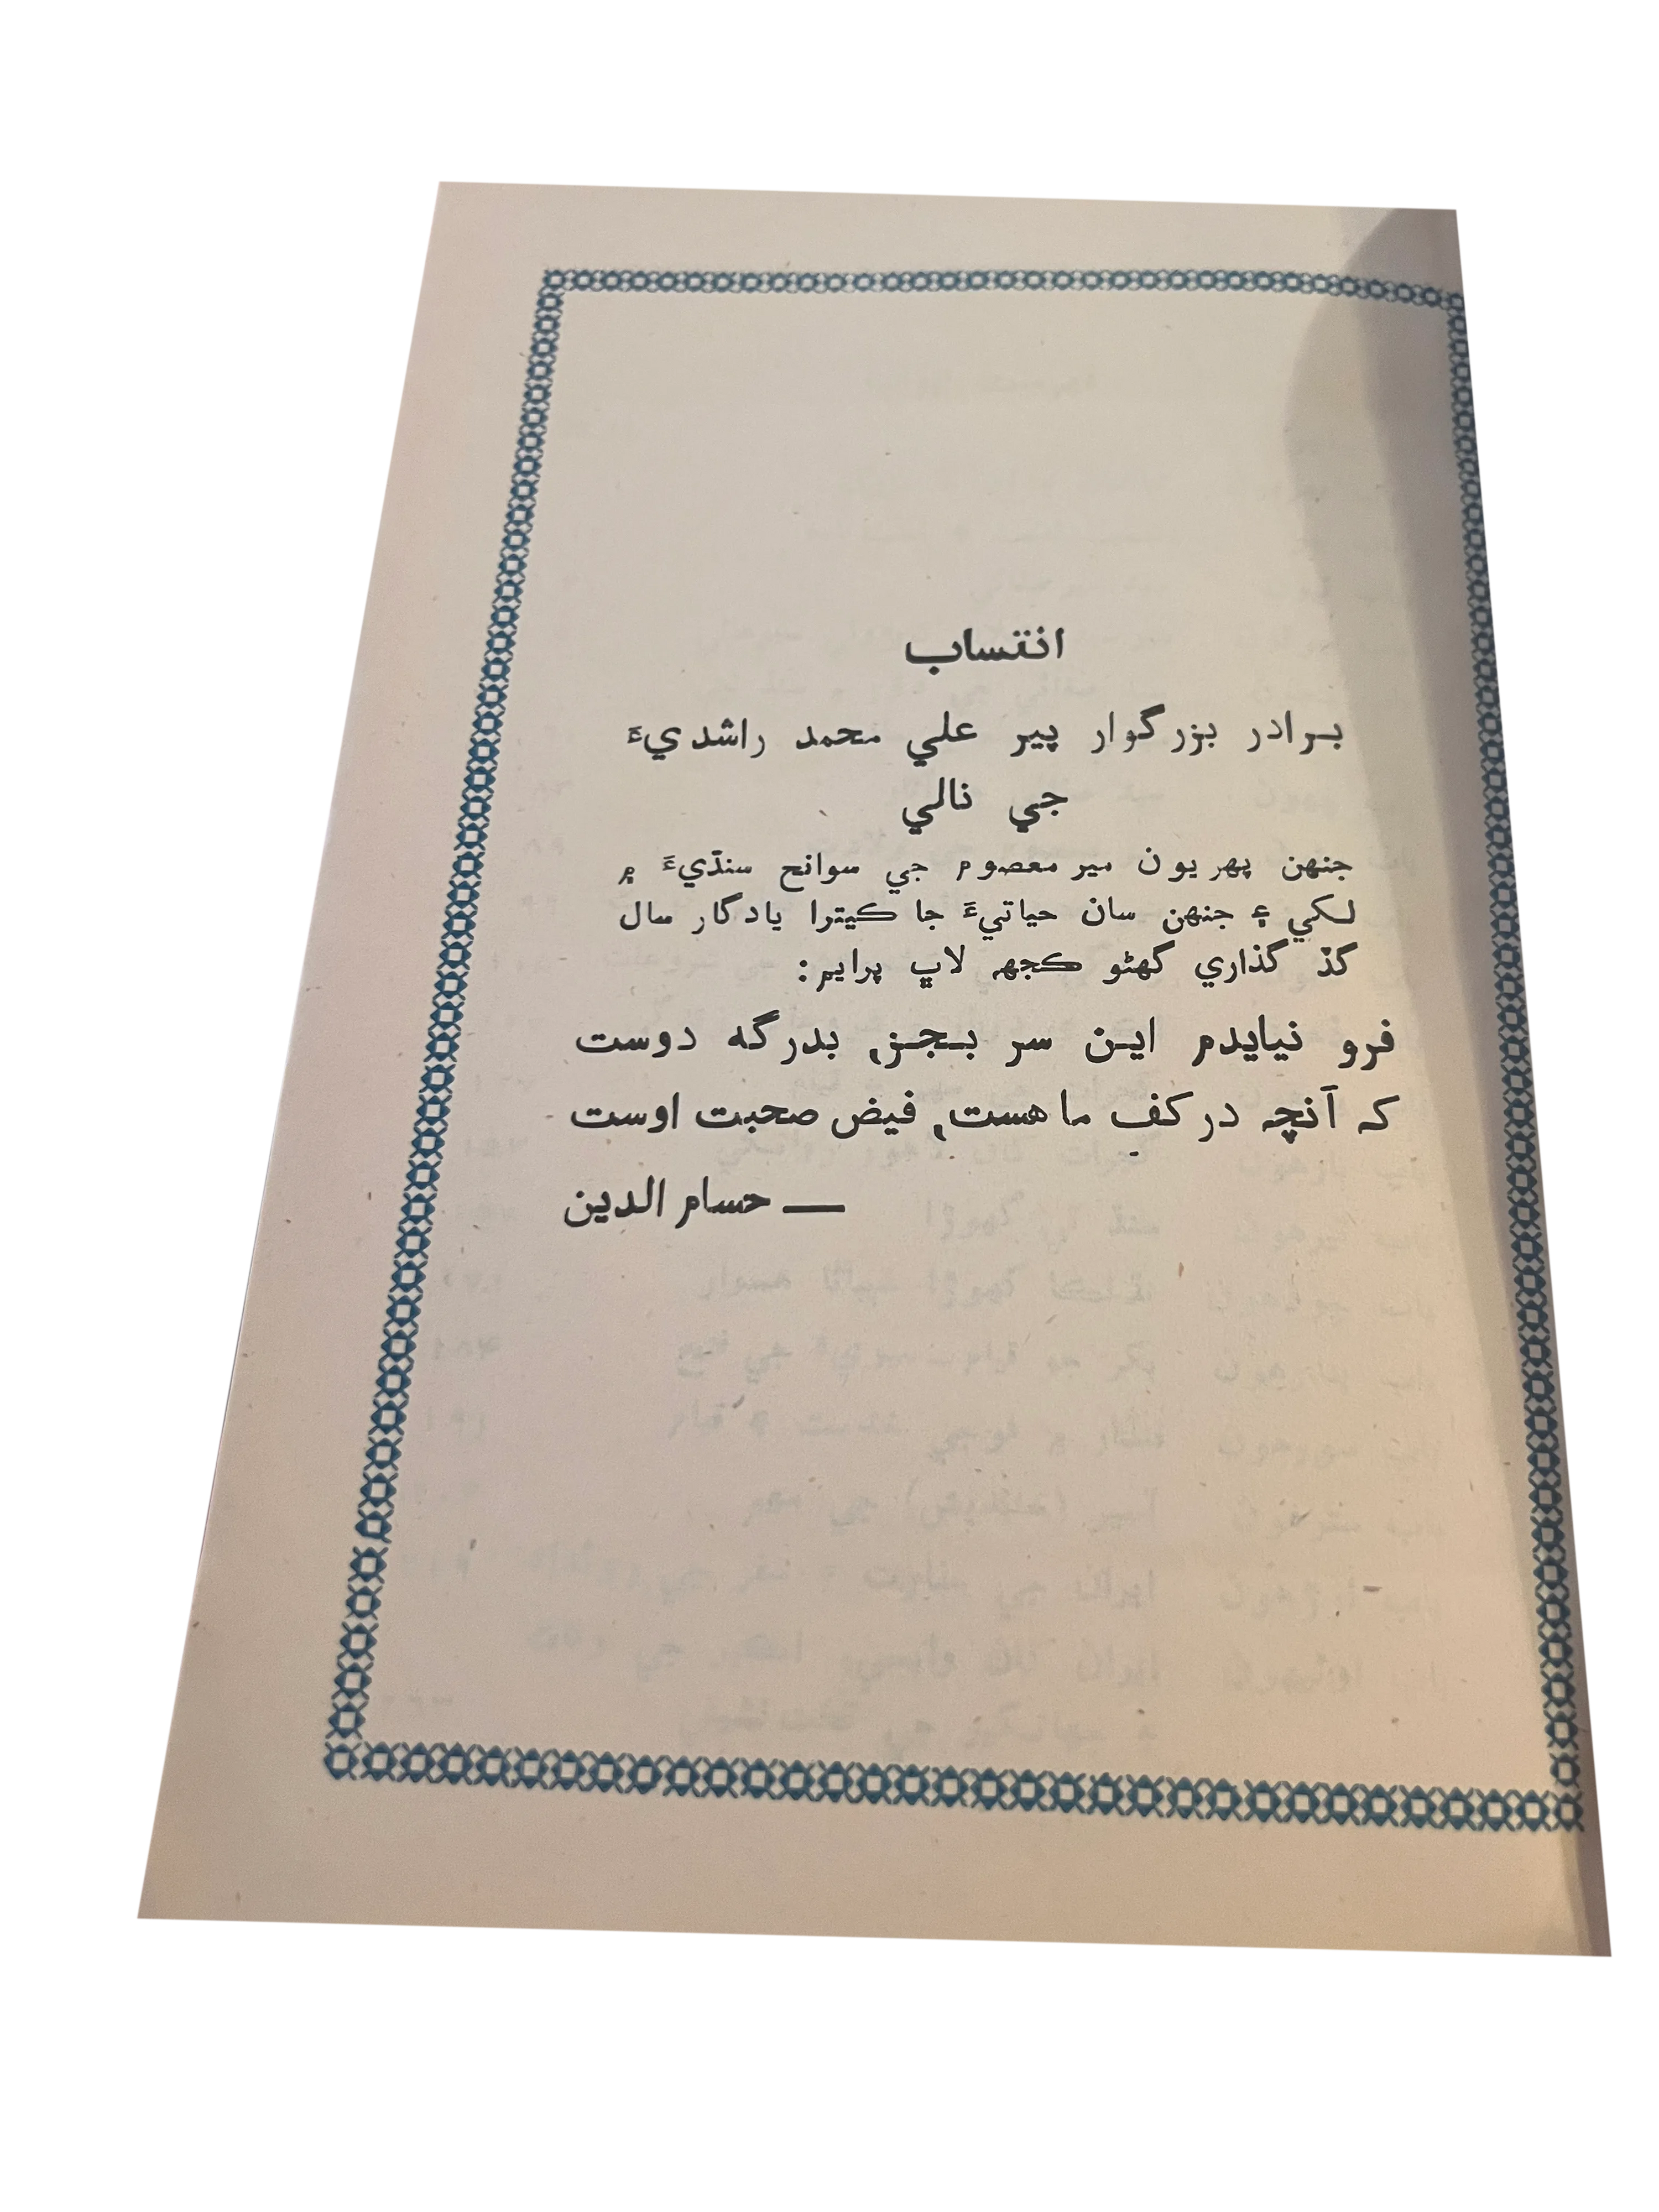 انتساب
برادر بزرگوار پير علي محمد راشديءَ
جي نالي
جنهن پهريون مير معصوم جي سوانح سنڌيءَ ۾
لکي ۽ جنهن سان حياتيءَ جا ڪيترا يادگار سال
گڏ گذاري گهڻو ڪجهہ لاڀ پرايم:
فرو نيايدم اين سر بجز، بدرگه دوست
که آنچه در کف ما هست، فيض صحبت اوست
— حسام الدين